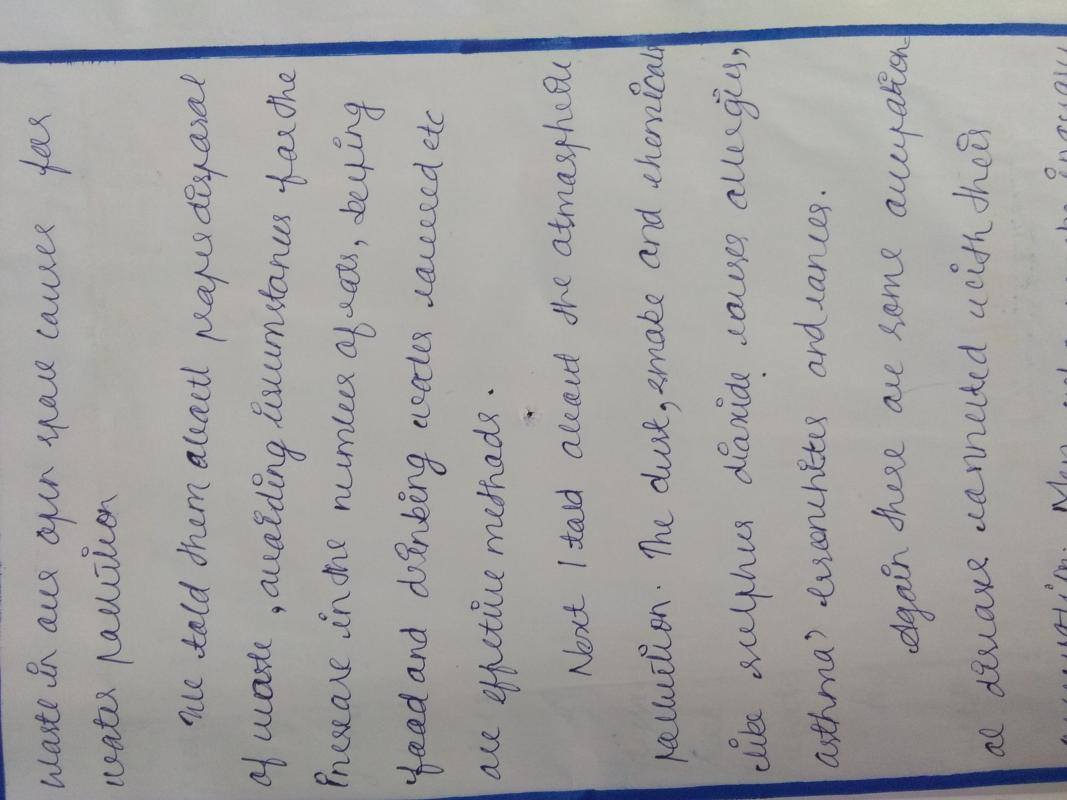 Waste in our open space causes for
water pollution
We told them about proper disposal
of waste, avoiding circumstances for the
increase in the number of rats, keeping
food and drinking water covered etc
are effective methods.
Next I told about the atmospheric
pollution. The dust, smoke and chemicals
like sulphur dioxide causes allergies,
asthma, and cancer.
Again there are some occupation-
al disease connected with their